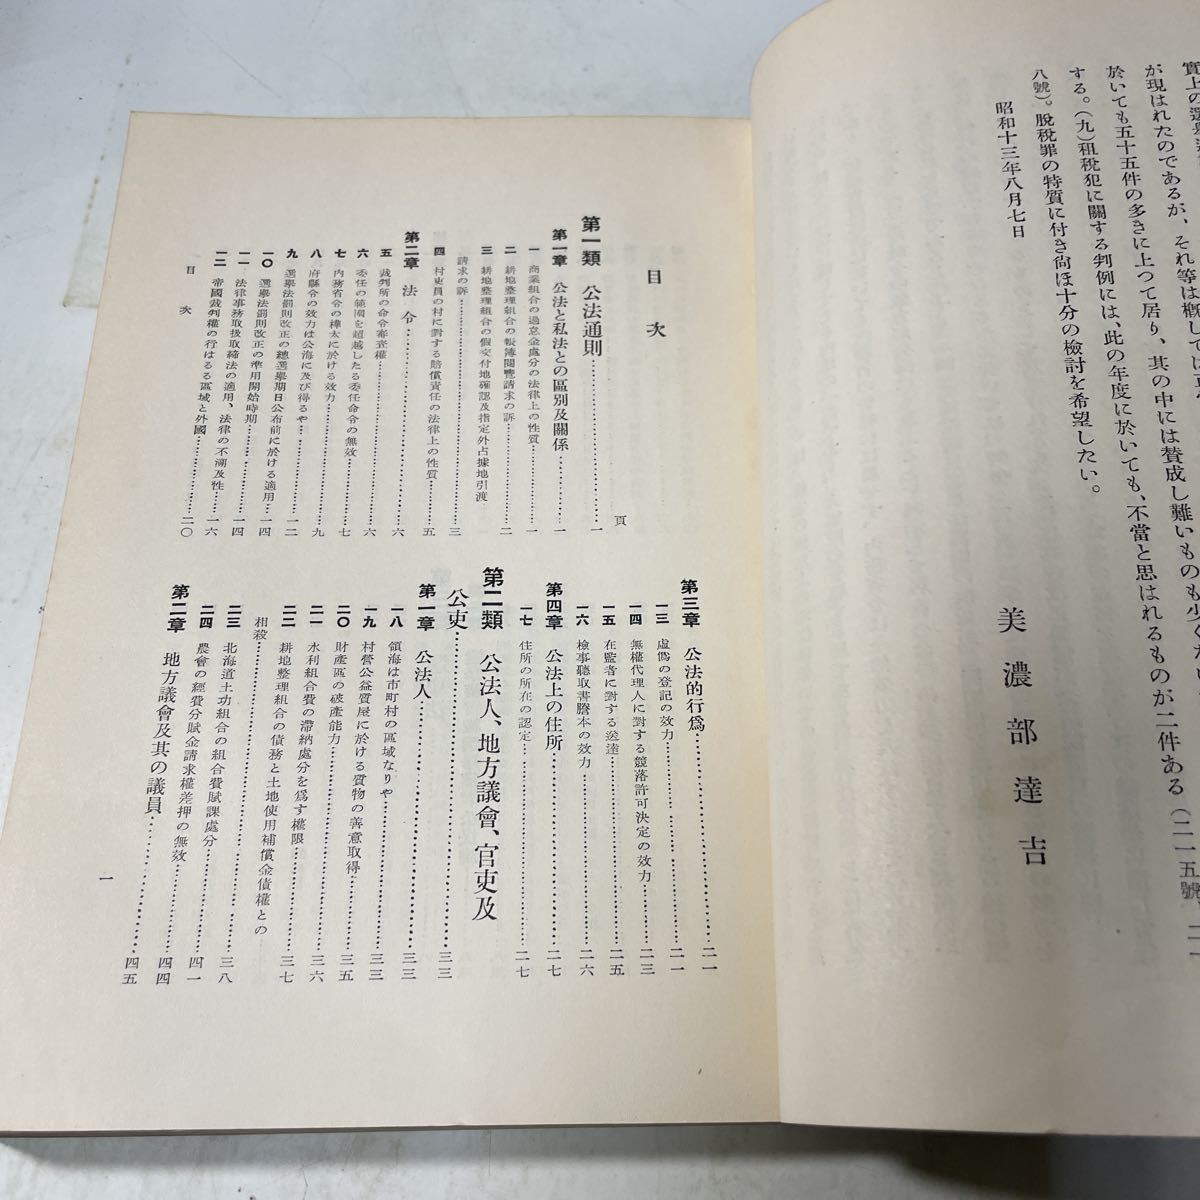 が現はれたのであるが、それ等は概して
於いても五十五件の多きに上つて居り、其の中には賛成し難いものも少くない
する。(九)租税犯に關する判例には、此の年度に於いても、不當と思はれるものが二件ある(二一五號、二一
八號)。脫税罪の特質に付き尙ほ十分の檢討を希望したい。
昭和十三年八月七日
美濃部達吉
目次
頁
第一類 公法通則……一
第一章 公法と私法との區別及關係……一
一 商業組合の過怠金處分の法律上の性質……一
二 耕地整理組合の帳簿閲覽請求の訴……二
三 耕地整理組合の假交付地確認及指定外占據地引渡
請求の訴……三
四 村吏員の村に對する賠償責任の法律上の性質……五
第二章 法令……六
五 裁判所の命令審査權……六
六 委任の範圍を超越したる委任命令の無效……七
七 内務省令の樺太に於ける效力……七
八 府縣令の效力は公海に及び得るや……九
九 選擧法罰則改正の總選擧期日公布前に於ける適用……一二
一〇 選擧法罰則改正の準用開始時期……一四
一一 法律事務取扱取締法の適用、法律の不溯及性……一六
一二 帝國裁判權の行はるる區域と外國……二〇
第三章 公法的行爲……二一
一三 虛僞の登記の效力……二一
一四 無權代理人に對する競落許可決定の效力……二三
一五 在監者に對する送達……二五
一六 檢事聽取書謄本の效力……二六
第四章 公法上の住所……二七
一七 住所の所在の認定……二七
第二類 公法人、地方議會、官吏及
公吏……三三
第一章 公法人……三三
一八 領海は市町村の區域なりや……三三
一九 村營公益質屋に於ける質物の善意取得……三三
二〇 財產區の破產能力……三五
二一 水利組合費の滯納處分を爲す權限……三六
二二 耕地整理組合の債務と土地使用補償金債權との
相殺……三七
二三 北海道土功組合の組合費賦課處分……三八
二四 農會の經費分賦金請求權差押の無效……四一
第二章 地方議會及其の議員……四四
四五
目次
一